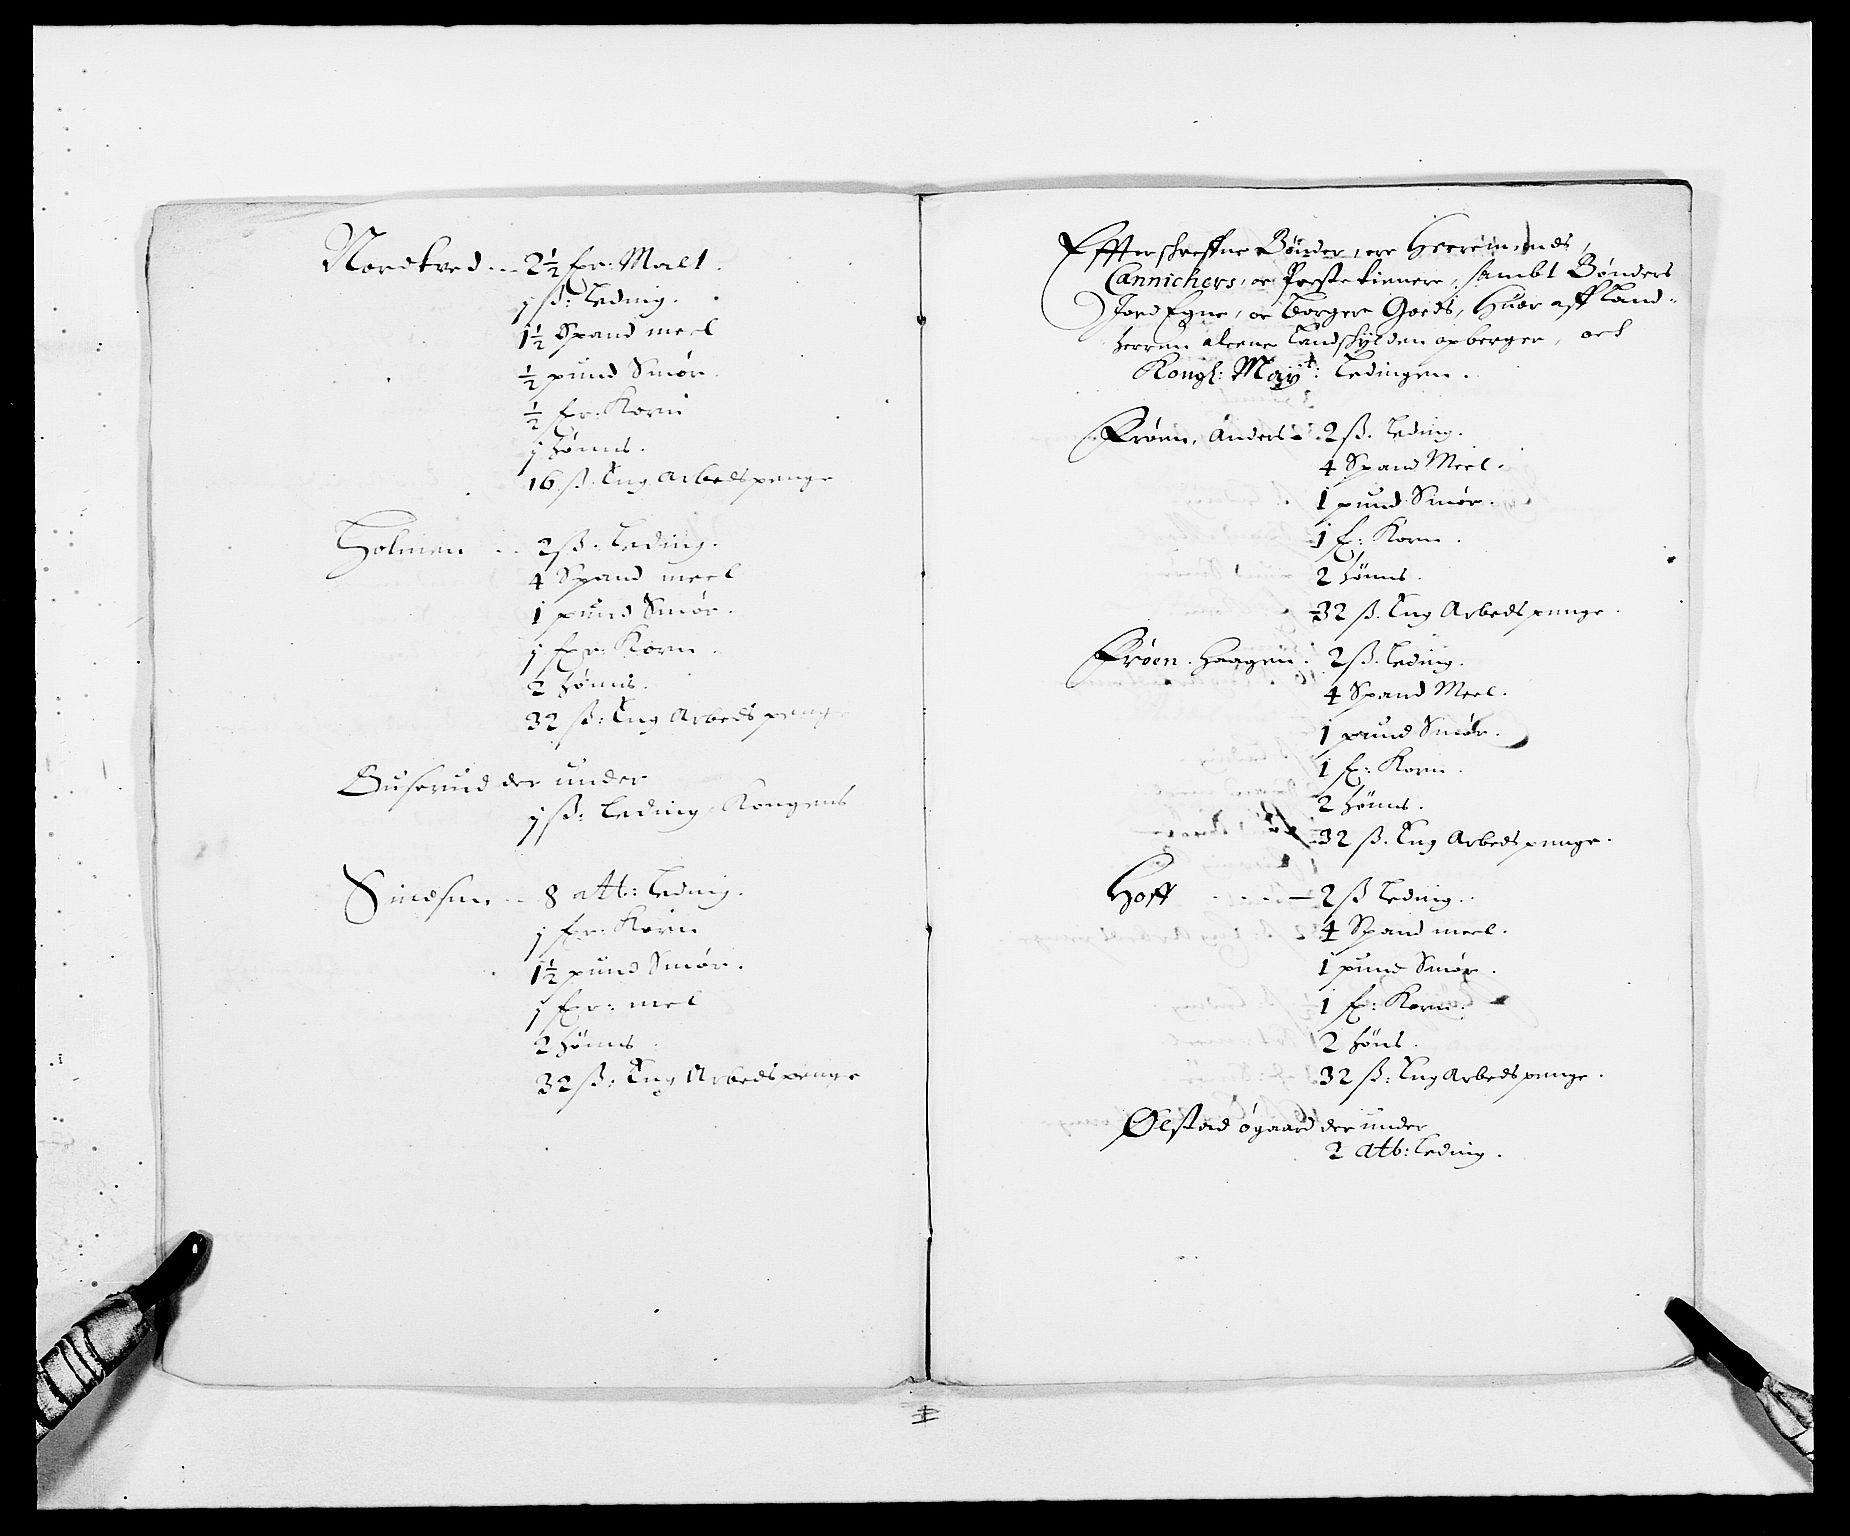 Nordtved - - 2½ fxr: Malt.
1 ß: Leding.
1½ Spand meel
½ pund Smør.
½ fxr: Korn
1 hønns.
16 ß. Eng Arbeds penge
Holmen - - 2 ß. Leding.
4 Spand meel
1 pund Smør.
1 fxr: Korn.
2 hønns.
32 ß: Eng Arbeds penge
Guserud der under
1 ß: Leding, Kongens
- - 8 att: Leding.
1 fxr: Korn
1½ pund Smør.
1 fxr: mel
2 hønns.
32 ß: Eng Arbeds penge
Effterschreffne Bønder, ere
Cannichers, oc Preste tienere, sambt Bønders
Jord Egne, oc Borgere Goeds, Huor aff Land-
herren aleene Landschylden opberger, och
Kongl: Mayt: Ledingen.
Frøen, Anders - 2 ß. Leding.
4 Spand Meel.
1 pund Smør.
1 fx: Korn.
2 hønns.
32 ß. Eng Arbeds penge.
Frøen. Haagen. 2 ß. Leding.
4 Spand Meel.
1 pund Smør.
1 fx: Korn.
2 hønns.
32 ß. Eng Arbeds penge.
Hoff . . . — 2 ß Leding.
4 Spand meel.
1 pund Smør.
1 fx: Korn.
2 høns.
32 ß: Eng Arbeds penge.
Ølstad øgaard der under
2 atb: Leding.